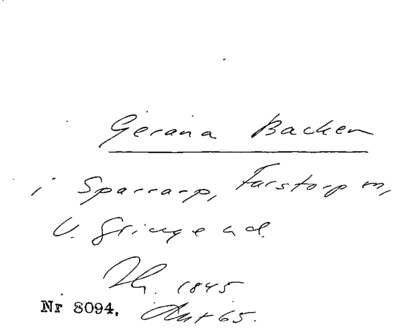 Gerana Backen
i Sparrarp, Farstorp m,
V. Göinge hd.
Th. 1845
Nr 8094. Ant 65.